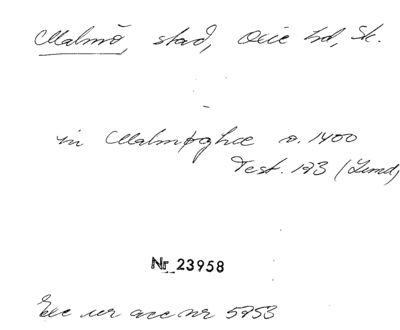 Malmö, stad, Oxie hd, Sk.
in Malmøghæ o. 1400
Test. 173 (Lund)
Nr 23958
Exc ur acc nr 5753